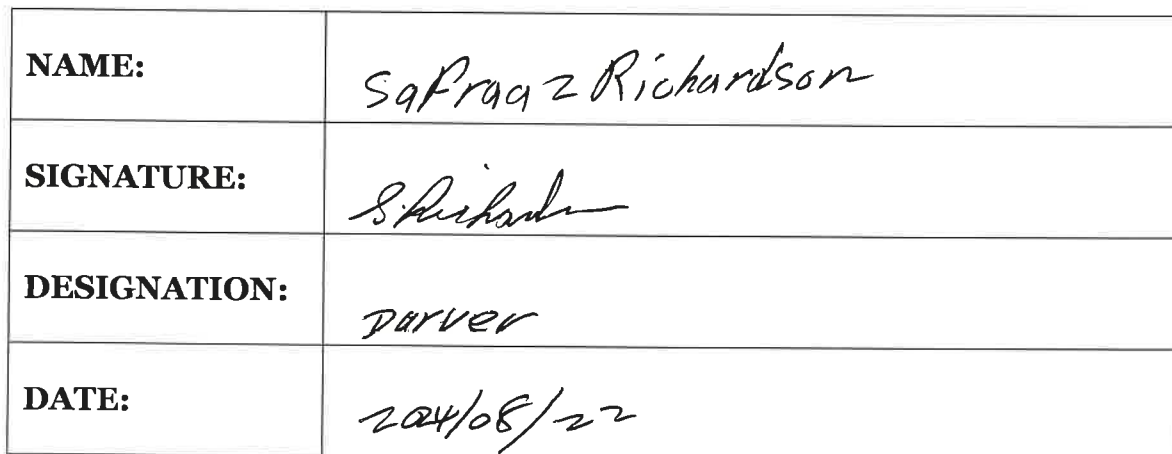 NAME: Safraaz Richardson
SIGNATURE: S. Richardson
DESIGNATION: Darver
DATE: 2024/08/22